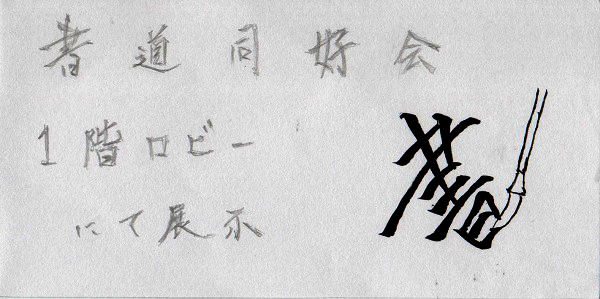 書道同好会
1階ロビー
にて展示